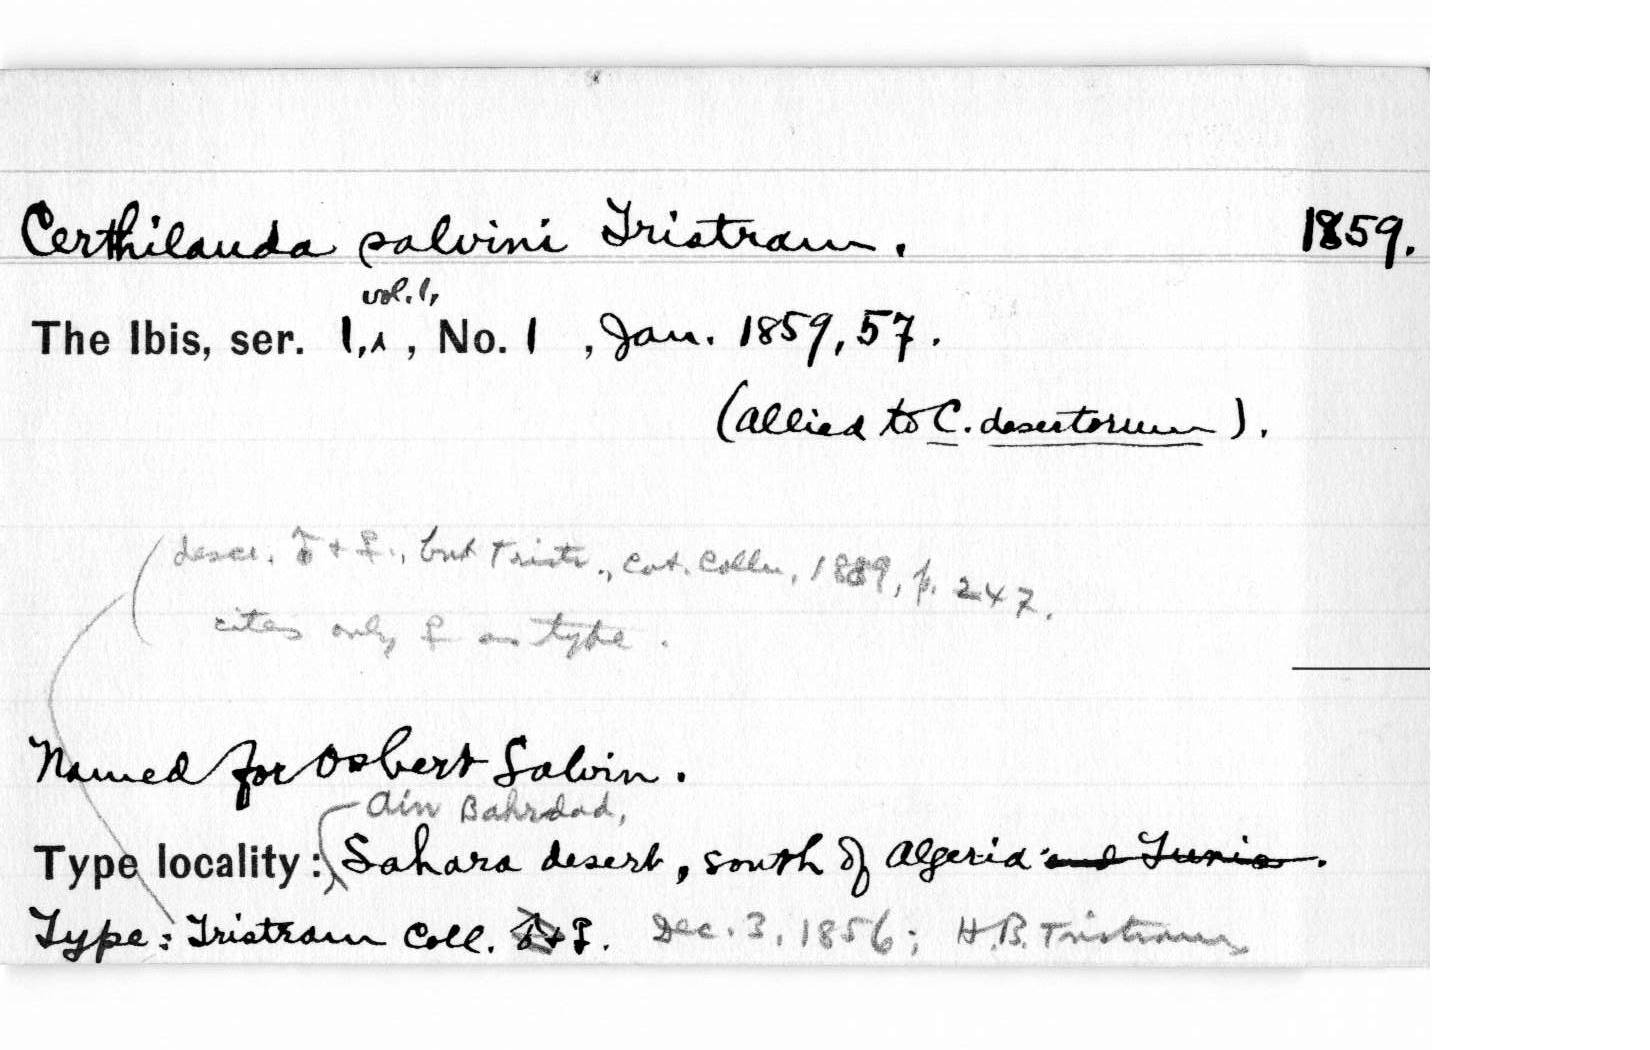 Certhilauda salvini Tristram. 1859.
vol. 1,
The Ibis, ser. 1,‸, No. 1, Jan. 1859, 57.
(allied to C. desertorum).
(descr. ♂ + ♀., but Tristr., Cat. Colln, 1889, p. 247.
cites only ♀ as type.
Named for Osbert Salvin.
Ain Bahrdad,
Type locality: Sahara desert, south of Algeria and Tunis.
Type: Tristram Coll. ♂+♀. Dec. 3, 1856; H.B. Tristram